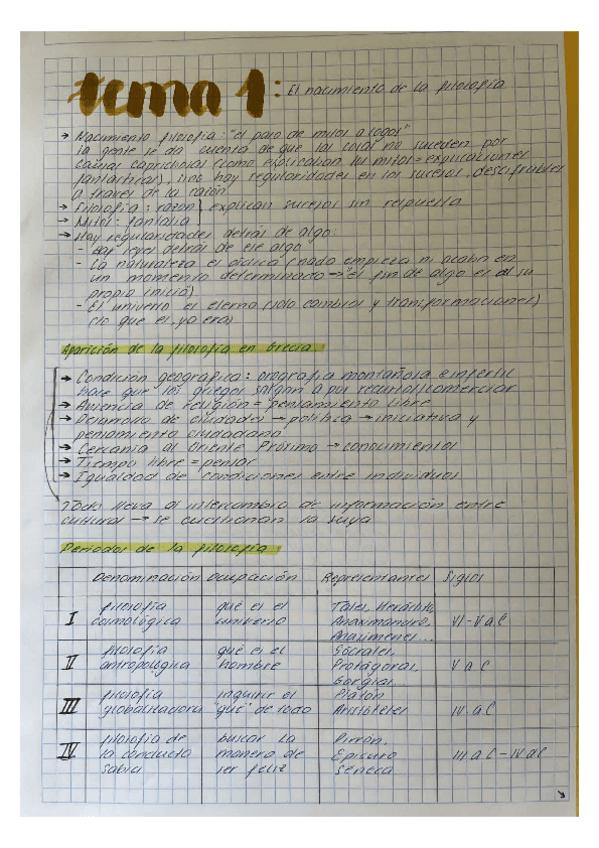 tema 1: El nacimiento de la filosofía
→ Nacimiento filosofía: "el paso de mitos a logos"
la gente se da cuenta de que las cosas no suceden por
causas caprichosas (como explicaban los mitos = explicaciones
fantásticas), sino hay regularidades en los sucesos, descifrables
a través de la razón
→ Filosofía: razón } explican sucesos sin respuesta
→ Mitos: fantasía
→ Hay regularidades detrás de algo:
- Hay leyes detrás de ese algo
- La naturaleza es cíclica (nada empieza ni acaba en
un momento determinado → el fin de algo es el su
propio inicio)
- El universo es eterno (solo cambios y transformaciones)
(lo que es, ya era)
Aparición de la filosofía en Grecia.
→ Condición geográfica: orografía montañosa e infértil
hace que los griegos salgan a por recursos/comerciar
→ Ausencia de religión = pensamiento libre
→ Desarrollo de ciudades → política → iniciativa y
pensamiento ciudadano
→ Cercanía al Oriente Próximo → conocimientos
→ Tiempo libre = pensar
→ Igualdad de condiciones entre individuos
Todo lleva al intercambio de información entre
culturas → se cuestionan la suya
Periodos de la filosofía:
Denominación Ocupación Representantes Siglos
I filosofía cosmológica qué es el universo Tales, Heráclito, Anaximandro, Anaxímenes... VI-V a.C
II filosofía antropológica qué es el hombre Sócrates, Protágoras, Gorgias V a C
III filosofía globalizadora inquirir el "qué" de todo Platón Aristóteles IV. a C
IV filosofía de la conducta sabia buscar la manera de ser feliz Pirrón, Epicuro Séneca III a C - IV d C